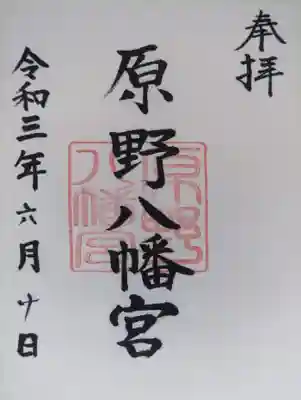 奉拝
原野八幡宮
令和三年六月十日
原野
八幡宮